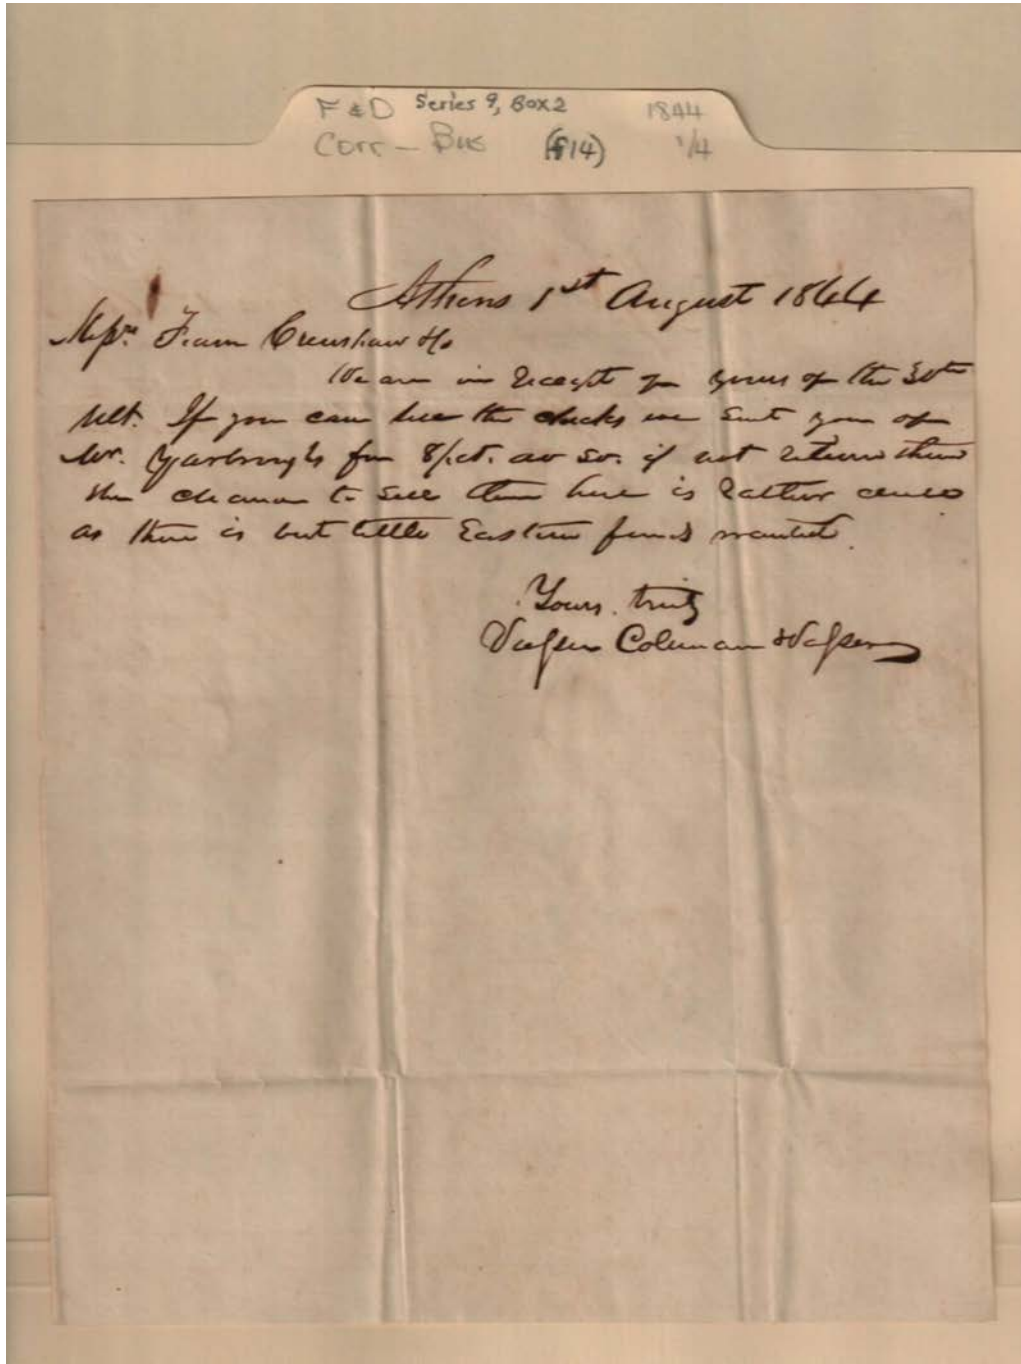 F & D Series 9, Box 2 1844
Corr - Bus (f14) 1/4
Athens 1st August 1844
Messrs. Fearn Crenshaw & Co
We are in Receipt of yours of the 30th
Ult. If you can use the checks we sent you of
Mr. Yarbrough's for 8/ct. do so. if not return them
the chance to sell them here is Rather
as there is but little Eastern funds wanted.
Yours truly
Vasser Coleman & Vasser